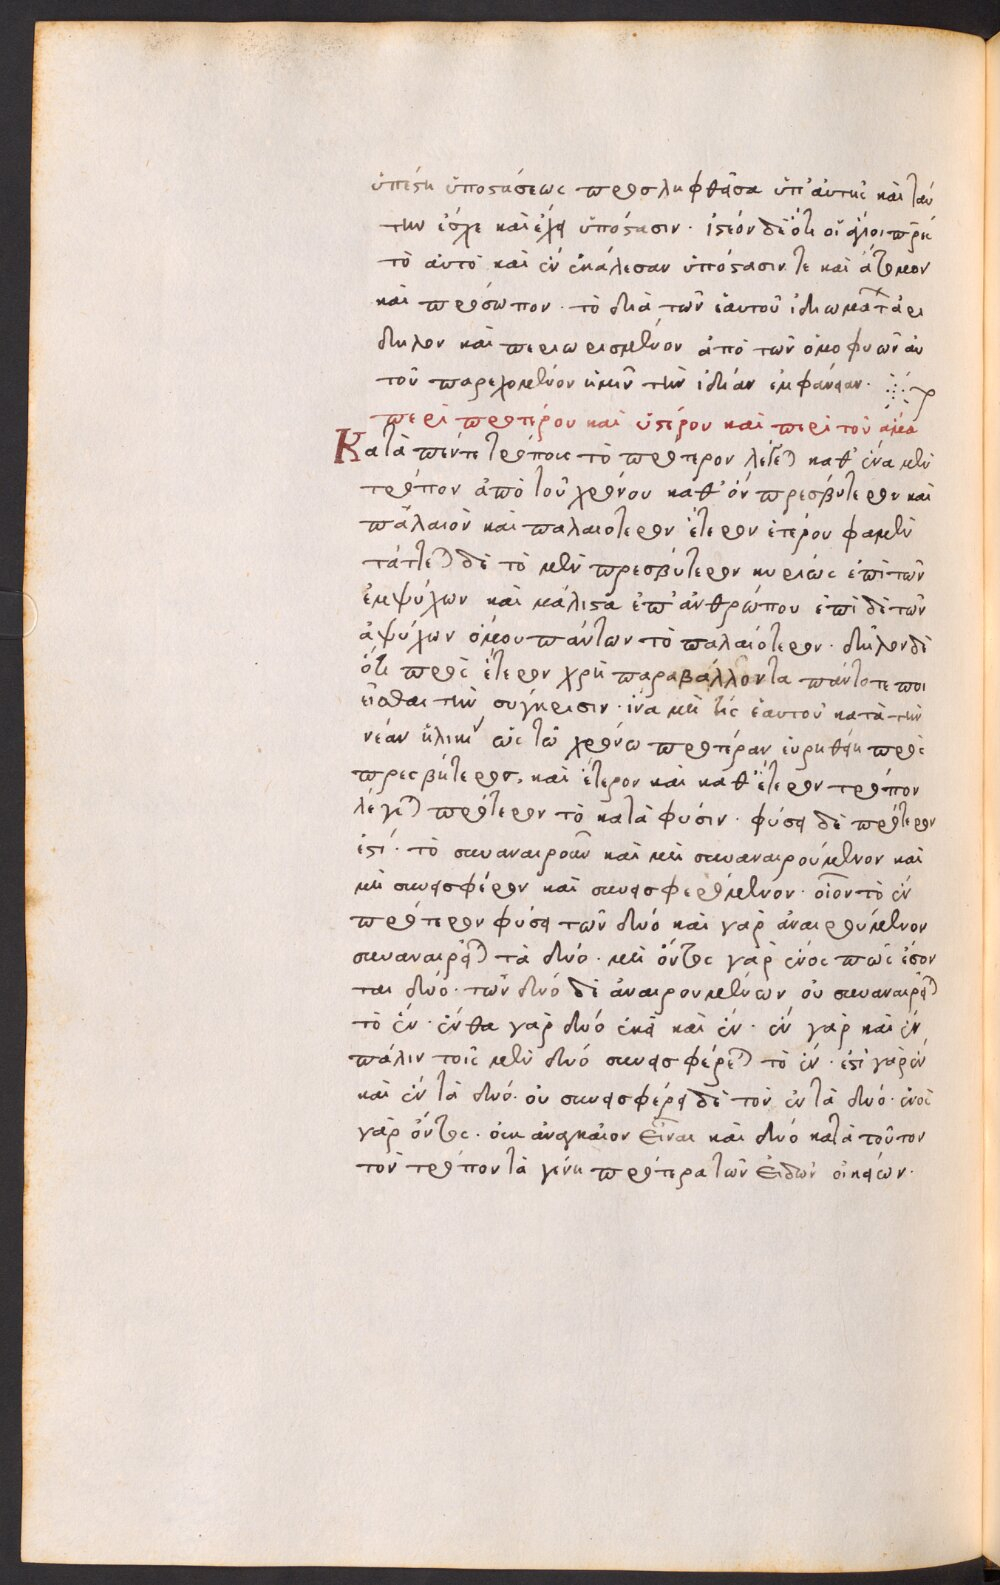 ὑπέστη ὑποστάσεως προσληφθῆσα ὑπ' αὐτῆς καὶ ταύ
την ἔσχε καὶ ἔχει ὑπόστασιν · ἰστέον δὲ ὅτι οἱ ἅγιοι πρε
τὸ αὐτὸ καὶ ἓν ἐκάλεσαν ὑπόστασιν τε καὶ ἄτομον
καὶ πρόσωπον · τὸ διὰ τῶν ἑαυτοῦ ἰδιωμάτ ἀρι
δηλον καὶ περιωρισμένον ἀπὸ τῶν ὁμοφυῶν αὐ
τοῦ παρεχομένον ἡμῖν τὴν ἰδίαν ἐμφάνειαν ·
περὶ προτέρου καὶ ὑστέρου καὶ περὶ τοῦ ἅμα
Κατὰ πέντε τρόπους τὸ πρότερον λέγεται καθ' ἕνα μὲν
τρόπον ἀπὸ τοῦ χρόνου καθ' ὃν πρεσβύτερον καὶ
πάλαιον καὶ παλαιοτερον ἕτερον ἑτέρου φαμὲν
τάττεται δὲ τὸ μὲν πρεσβύτερον κυρίως ἐπὶ τῶν
ἐμψύχων καὶ μάλιστα ἐπ' ἀνθρώπου ἐπὶ δὲ τῶν
ἀψύχων ὁμου πάντων τὸ παλαιότερον · δῆλον δὲ
ὅτι πρὸς ἕτερον χρὴ παραβάλλοντα πάντοτε ποι
εῖσθαι τὴν σύγκρισιν · ἵνα μὴ τίς ἑαυτοῦ κατὰ τὴν
νέαν ἡλικι ὡς τῶ χρόνω προτέραν εὑρηθῆ πρὸς
πρεσβήτερος, καὶ ἕτερον καὶ καθ' ἕτερον τρόπον
λέγεται πρότερον τὸ κατὰ φύσιν · φύσει δὲ πρότερον
ἐστί · τὸ συναναιροῦν καὶ μὴ συναναιρούμενον καὶ
μὴ συνεισφέρον καὶ συνεισφερόμενον · οἷον τὸ ἓν
πρότερον φύσει τῶν δύο καὶ γὰρ ἀναιρουμενον
συναναιρεῖται τὰ δύο · μὴ ὄντος γὰρ ἑνὸς πῶς ἔσον
ται δύο · τῶν δύο δὲ ἀναιρουμένων οὐ συναναιρεῖται
τὸ ἓν · ἔνθα γὰρ δύο ἐκεῖ καὶ ἓν · ἓν γὰρ καὶ ἓν
πάλιν τοῖς μὲν δύο συνεισφέρεται τὸ ἓν · ἐστὶ γὰρ ἓν
καὶ ἓν τὰ δύο · οὐ συνεισφέρει δὲ τὸν ἓν τὰ δύο · ἑνὸς
γὰρ ὄντος · οὐκ ἀναγκαῖον εἶναι καὶ δύο κατὰ τοῦτον
τὸν τρόπον τὰ γένη πρότερα τῶν εἰδῶν οἰκείων ·